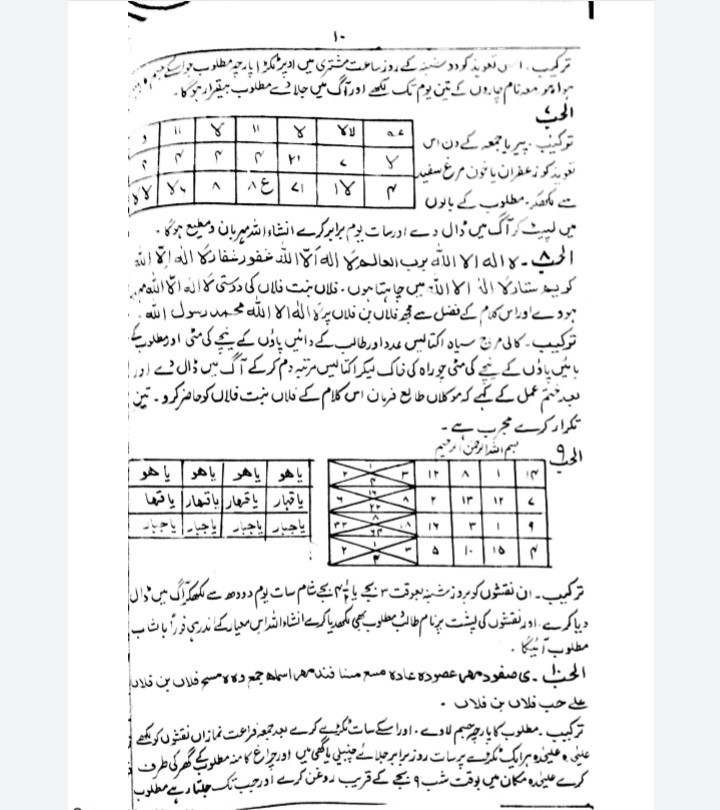 ۱۰
ترکیب۔ اس تعویذ کو دوشنبہ کے روز ساعت مشتری میں اوپر ٹکڑا پارچہ مطلوب جو اسکے جسم
ہوا ہو معہ نام چاروں کے تین یوم تک لکھے اور آگ میں جلائے مطلوب بیقرار ہوگا۔
الحب
ترکیب۔ پیر یا جمعہ کے دن اس
تعویذ کو زعفران یا خون مرغ سفید
سے لکھکر۔ مطلوب کے بالوں
لا ۷ ۲۱ ۴ ۴ ۴
۴ لا۱ ۷۱ ۸ ع ۸
میں لپیٹ کر آگ میں ڈال دے اور سات یوم برابر کرے انشاءاللہ مہربان و مطیع ہوگا۔
الحب ۸۔ لا الہ الا اللہ برب العالم لا الہ الا اللہ غفور غفار لا الہ الا اللہ
کو یم ستار لا الہ الا اللہ میں چاہتا ہوں۔ فلاں بنت فلاں کی دوستی لا الہ الا اللہ
ہووے اور اس کلام کے فضل سے مجھ فلاں بن فلاں پر لا الہ الا اللہ محمد رسول اللہ۔
ترکیب۔ کالی مرچ سیاہ اکتالیس عدد اور طالب کے دائیں پاؤں کے نیچے کی مٹی اور مطلوب کے
بائیں پاؤں کے نیچے کی مٹی چوراہ کی خاک لیکر اکتالیس مرتبہ دم کر کے آگ میں ڈال دے اور
بعد ختم عمل کے کہے کہ موکلاں طالع فرمان اس کلام کے فلاں بنت فلاں کو حاضر کرو۔ تین
تکرار کرے مجرب ہے۔
الحب ۹
بسم اللہ الرحمٰن الرحیم
۱۴ ۱ ۸ ۱۲ ۳ ۱ ۲ ۴
۷ ۱۲ ۱۳ ۲ ۸ ۱۶ ۶ ۲۲
۹ ۱ ۳ ۱۶ ۱۸ ۸ ۳۲ ۶۴
۴ ۱۵ ۱۰ ۵ ۳ ۱ ۲ ۴
یا ھو یا ھو یا ھو یا ھو
یا قہار یا قہار یا قہار یا قہار
یا جبار یا جبار یا جبار یا جبار
ترکیب۔ ان نقشوں کو بروز شنبہ بوقت ۳ بجے یا ۴ بجے شام سات یوم دودھ سے لکھکر آگ میں ڈال
دیا کرے۔ اور نقشوں کی پشت پر نام طالب مطلوب بھی لکھدیا کرے انشاءاللہ اس معیار کے اندر ہی فوراً
مطلوب آئیگا۔
الحب ۱۰۔ عصودہ عادہ مسع جمع فلاں بن فلاں
علے حب فلاں بن فلاں۔
ترکیب۔ مطلوب کا پارچہ جسم لاوے۔ اور اسکے سات ٹکڑے کرے بعد جمعہ فراعت نماز ان نقشوں کو لکھے
علیٰحدہ علیٰحدہ ہر ایک ٹکڑے پر سات روز برابر جلائے چنبیلی یا گھی میں اور چراغ کا منہ مطلوب کے گھر کی طرف
کرے علیٰحدہ مکان میں بوقت شب ۹ بجے کے قریب روغن کرے اور جب تک جلتا رہے مطلوب